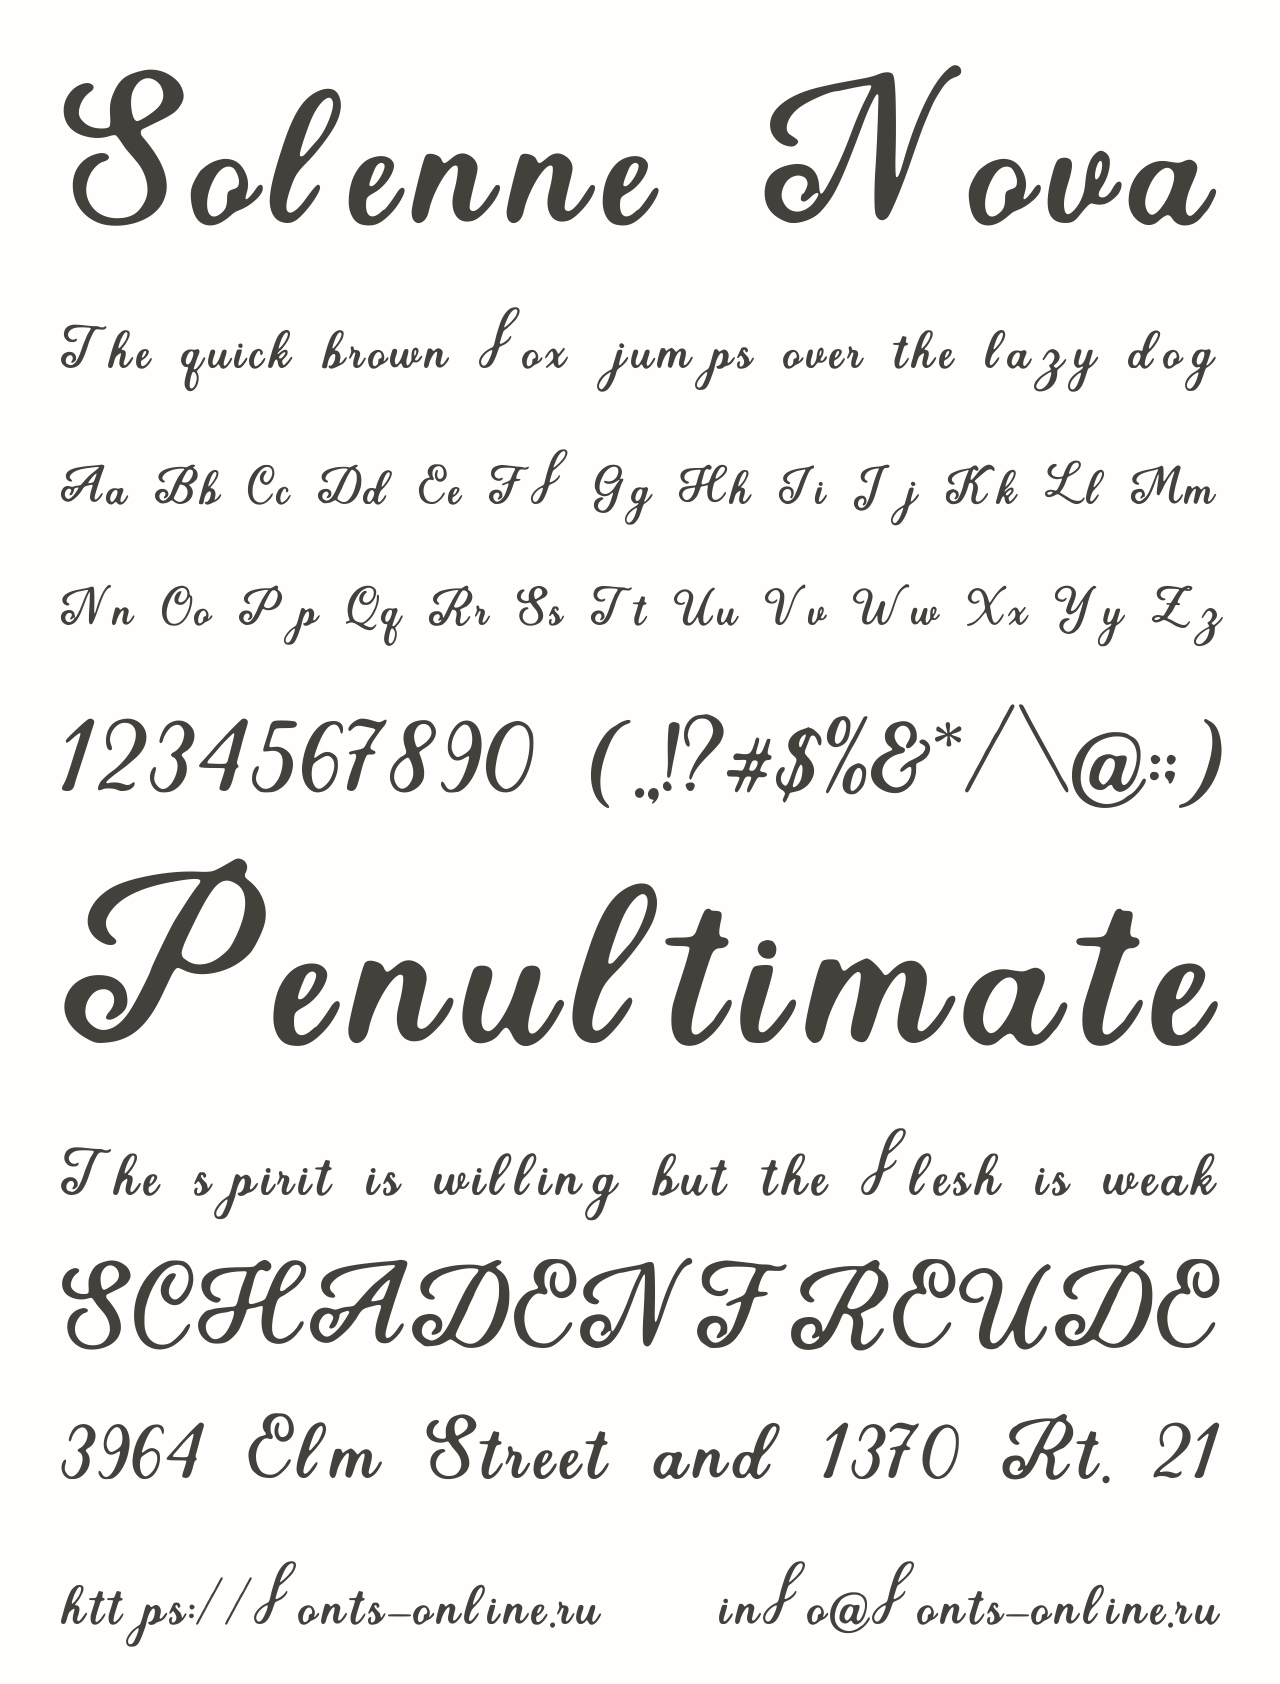 Solenne Nova
The quick brown fox jumps over the lazy dog
Aa Bb Cc Dd Ee Ff Gg Hh Ii Jj Kk Ll Mm
Nn Oo Pp Qq Rr Ss Tt Uu Vv Ww Xx Yy Zz
1234567890 (.,!?#$%&*/\@:;)
Penultimate
The spirit is willing but the flesh is weak
SCHADENFREUDE
3964 Elm Street and 1370 Rt. 21
https://fonts-online.ru info@fonts-online.ru